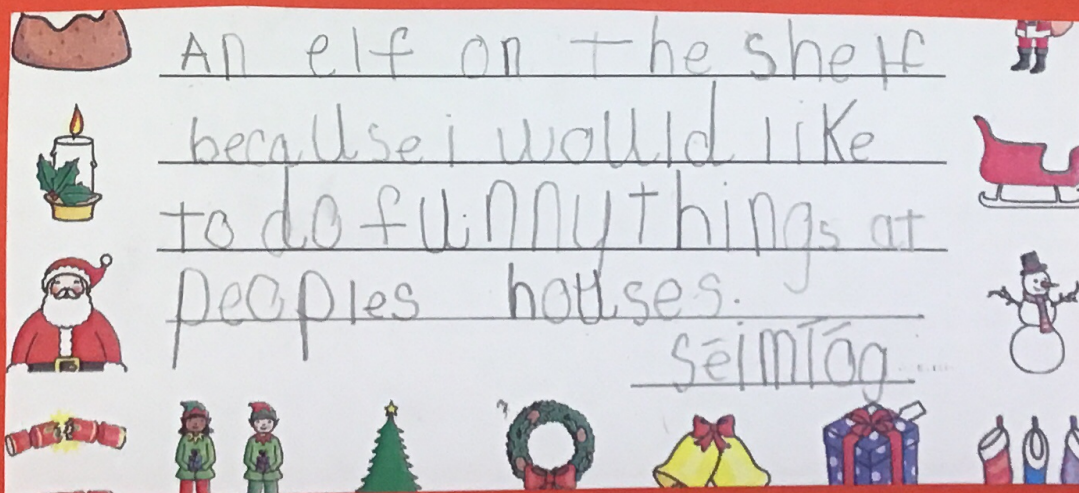 An elf on the shelf
because i would like
to do funny things at
peoples houses.
Séimí Óg